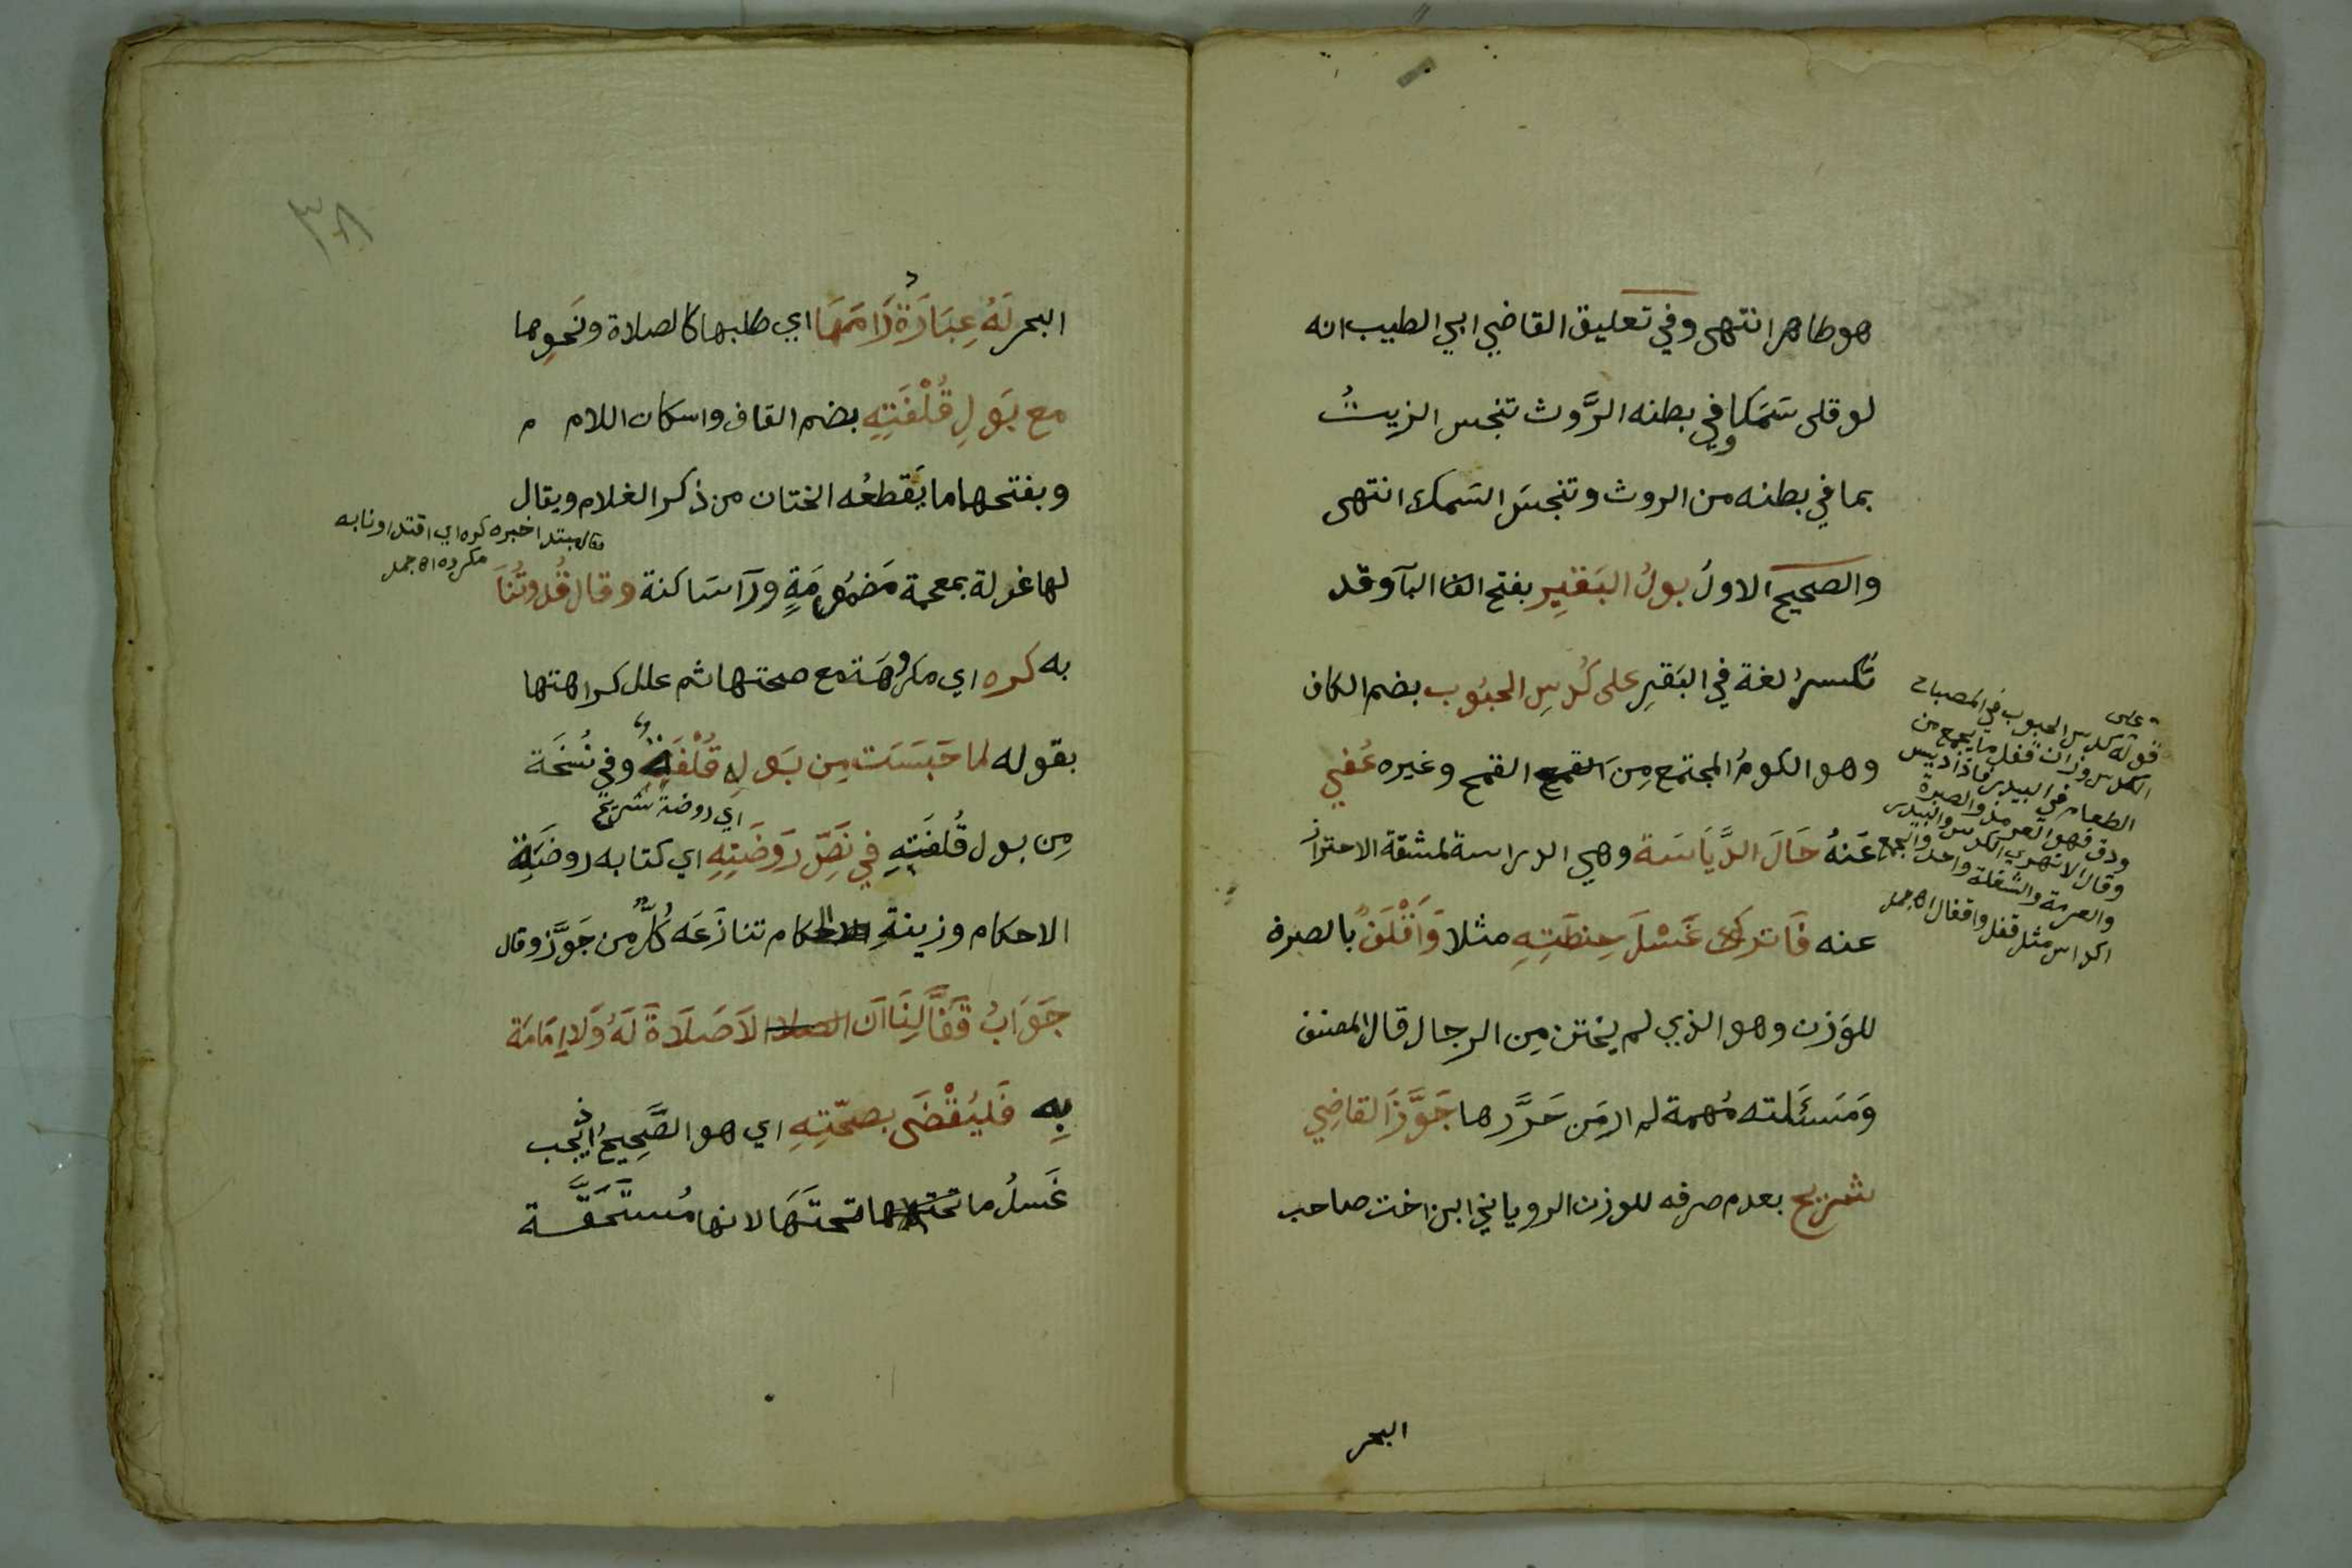 هو ظاهر انتهى وفي تعليق القاضي ابي الطيب انه
لو قلى سَمَكا وفي بطنه الرَّوث تنجس الزيتُ
بما في بطنه من الروث وتنجسَ السَمك انتهى
والصحيح الاولُ بولُ البَقَيرِ بفتح البآ وقد
تُكسرُ لغة في البَقيرِ على كُدسِ الحبُوب بضم الكاف
وهو الكومُ المجتمع مِنَ القمح القمح وغيره عُفِي
عَنهُ حَالَ الدِّيَاسَة وهي الدراسة لمشقة الاحتراز
عنه فَاتركَ غَسْلَ حِنطَتِهِ مثلا وَأَقْلَفٌ بالصرف
للوَزن وهو الذي لم يختن مِن الرجال قال المصنف
وَمَسئَلته مُهمة لم ار مَن حَرَّرها جَوَّزَ القاضِي
شريح بعدم صرفه للوزن الروياني ابن اخت صاحب
قوله كدس الحبوب في المصباح
الكدس وزان قفل ما يجمع من
الطعام في البيدر فاذا ديس
ودق فهو العرمة والصبرة
وقال الازهري الكدس والبيدر
والعرمة والشغلة واحد والجمع
اكداس مثل قفل واقفال اه جمل
البحر
٣٨
البحر لَهُ عِبَادَةٌ رَامَهَا اي طلبها كالصلاة ونَحوِها
مع بَولِ قُلْفَتِهِ بضم القاف واسكان اللام
وبفتحها ما يَقطعُه الختان من ذكر الغلام ويقال
لها غرلة بمعجمة مَضمُومَةٍ ورآ سَاكنة وقال قُدوتُنَا
مبتدا خبره كره اي اقتداونا به
مكروه اه جمل
به كره اي مكروهَة مع صحتها ثم علل كراهتها
بقوله لما حَبَسَت مِن بَولِهِ قُلْفَةٌ وفي نُسْخَة
مِن بول قُلفَتِهِ في نَصِّ رَوضَتِهِ اي كتابه روضَة
اي روضة شريح
الاحكام وزينةِ الحكام تنازَعَه كُلٌّ من جَوَّز وقال
جَوَابُ قَفَّالِنَا ان الصلا لاَ صَلاَةَ لَهُ وَلا إمَامَة
بِهِ فَليُقْضَى بصحّتِهِ اي هو الصَّحِيحُ اذ يجب
غَسلُ ما تحتها تحتَهَا لانها مُستَحَقَّة